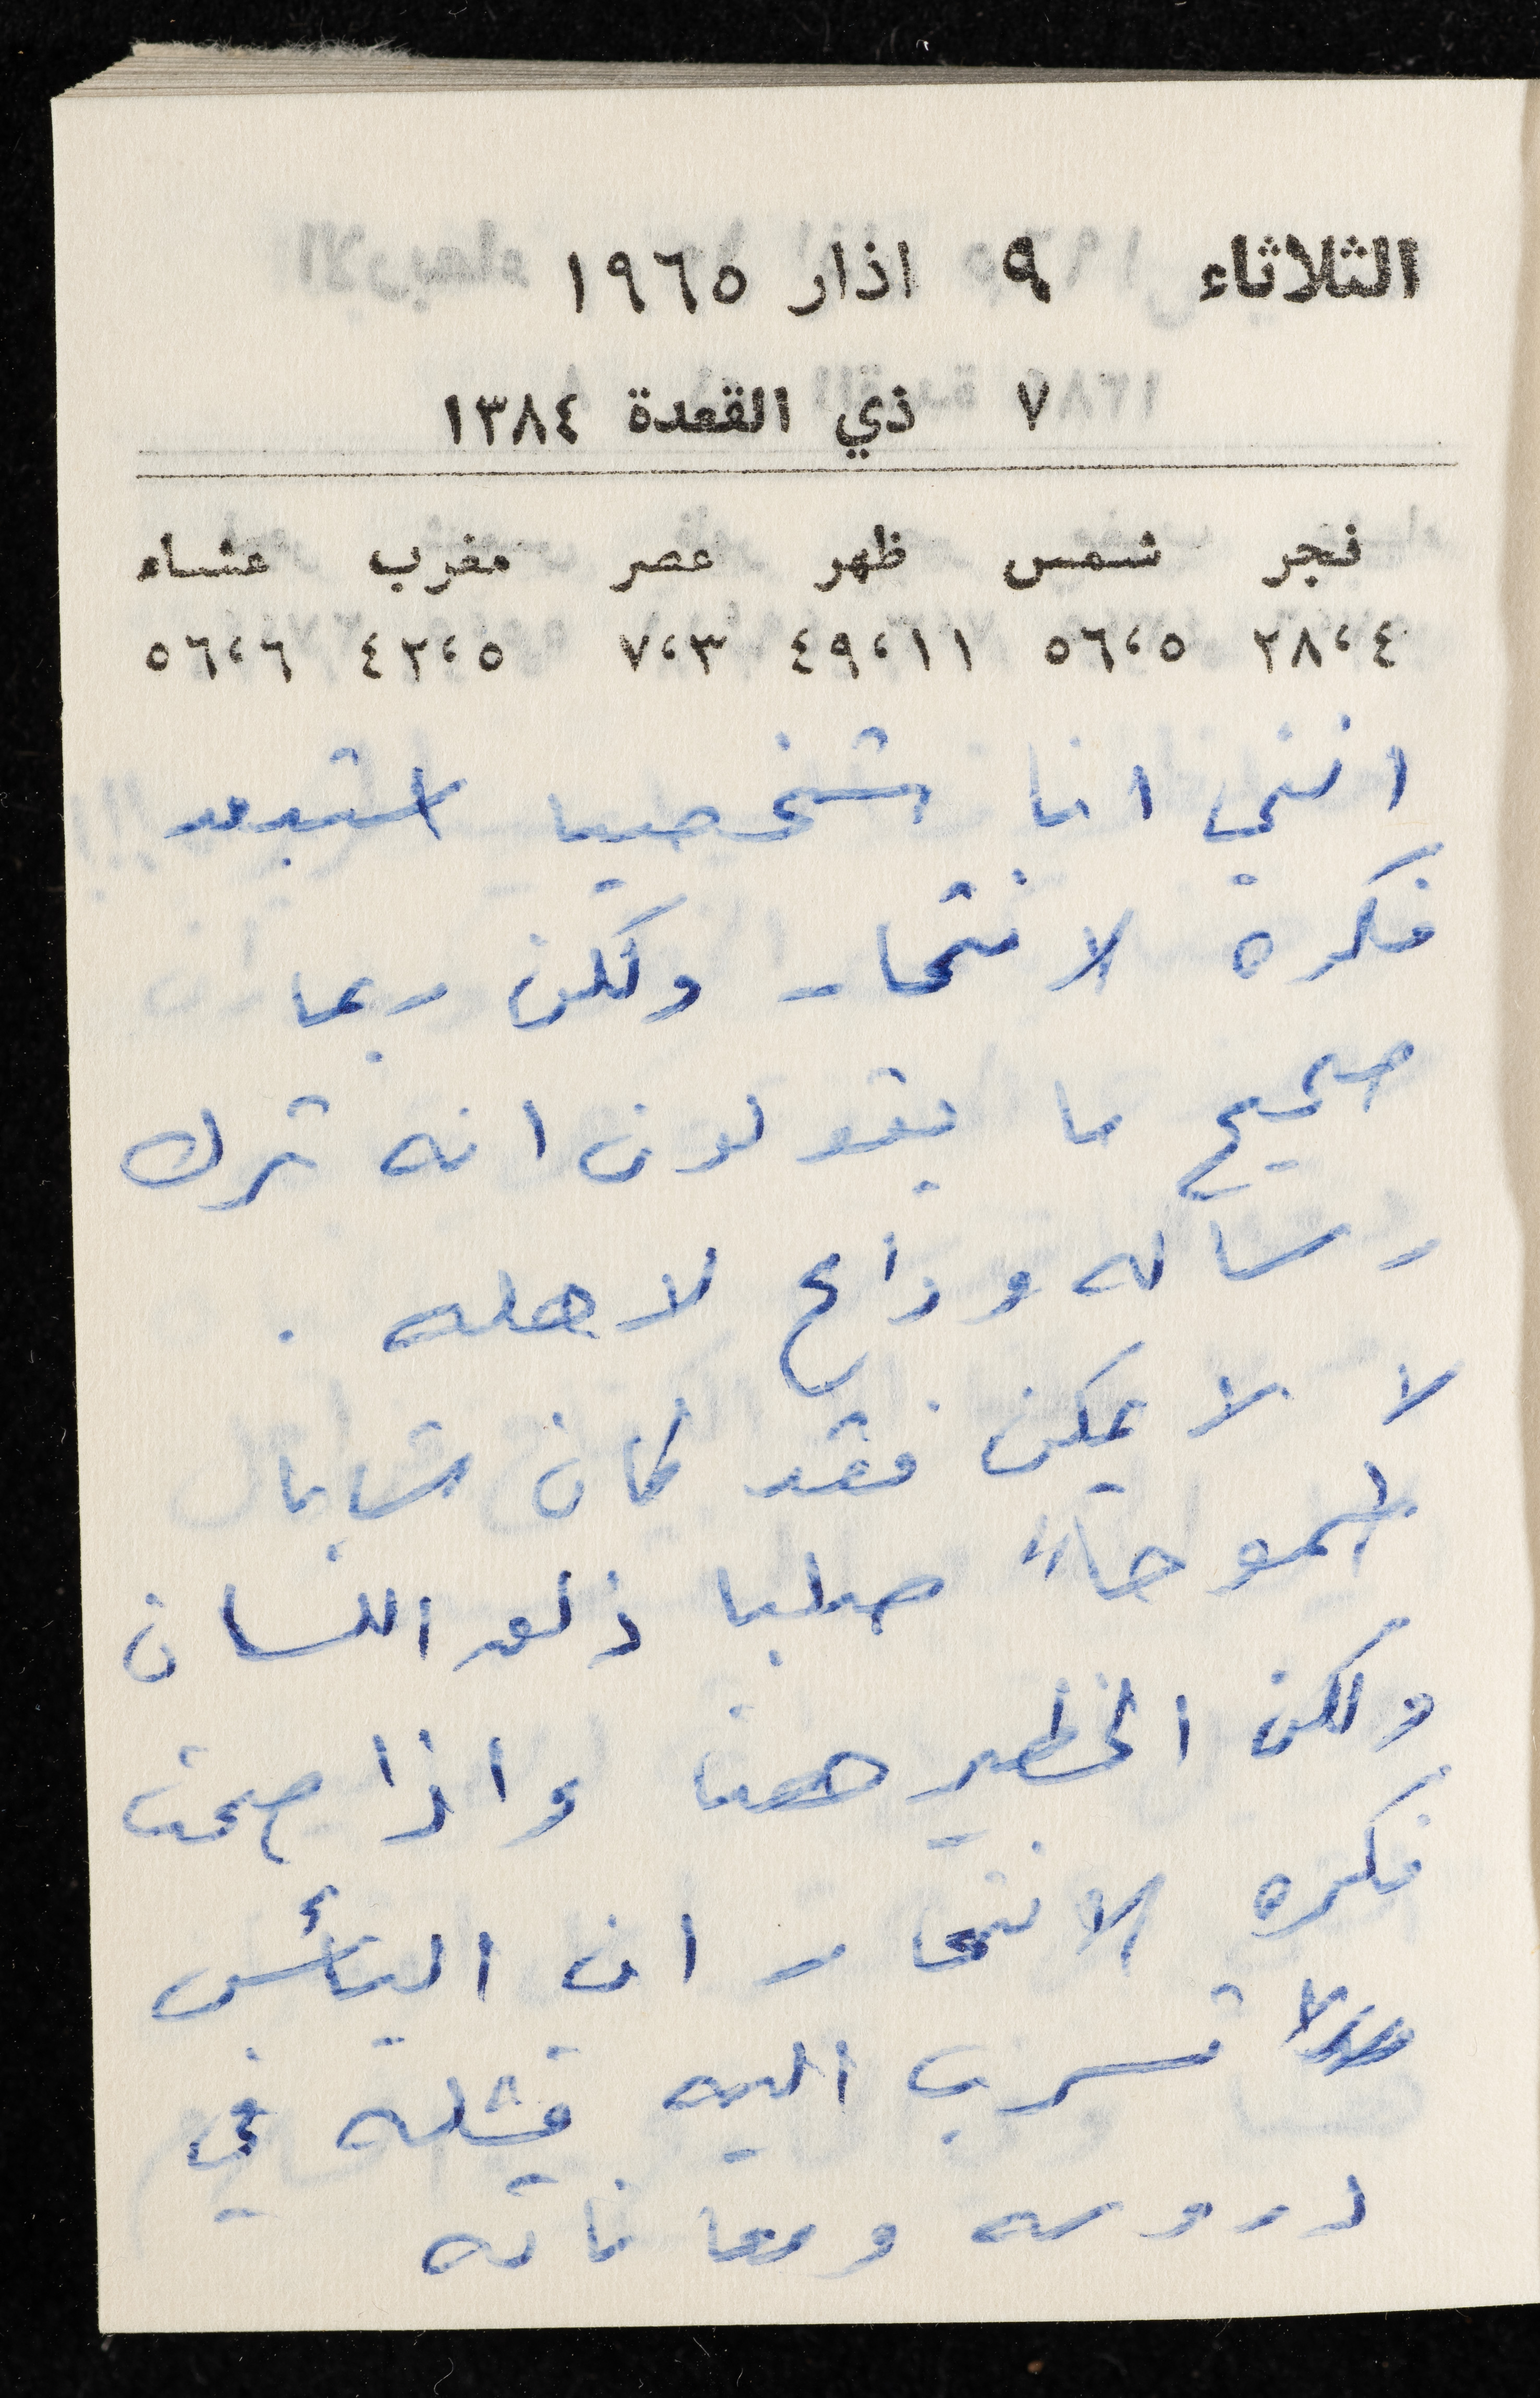 الثلاثاء ٩ اذار ١٩٦٥
٧ ذي القعدة ١٣٨٤
فجر شمس ظهر عصر مغرب عشاء
٢٨،٤ ٥٦،٥ ٤٩،١١ ٧،٣ ٤٢،٥ ٥٦،٦
انني انا شخصيا استبعد
فكرة الانتحار ولكن ربما
صحيح ما يقولون انه ترك
رساله وداع لاهله .
لا لا يمكن فقد كان شابا
طموحاً صلبا ذلق اللسان
ولكن الخطير هنا واذا صحت
فكره الانتحار ان اليأس
تسرب اليه فشله في
دروسه ومعاناته